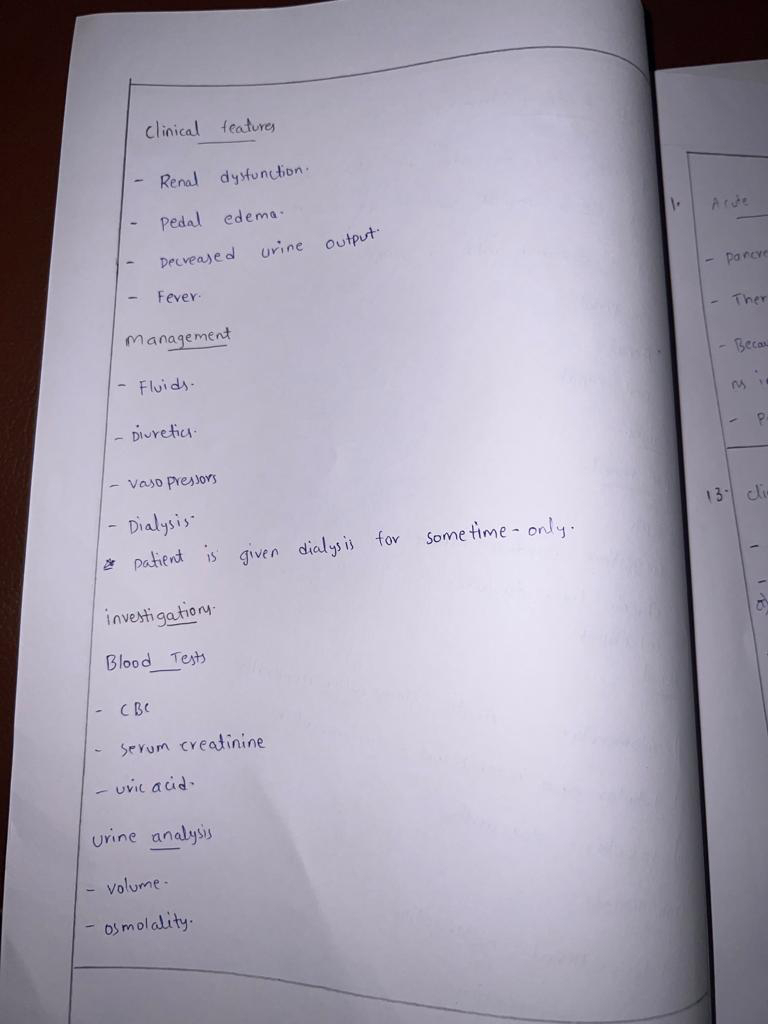 Clinical features
- Renal dysfunction.
- Pedal edema.
- Decreased urine output.
- Fever.
Management
- Fluids.
- Diuretics.
- Vasopressors
- Dialysis.
* patient is given dialysis for sometime - only.
investigations.
Blood Tests
- CBC
- serum creatinine
- uric acid.
urine analysis
- volume.
- osmolality.
1. Acute
-
- Ther
- Becau
-
13.